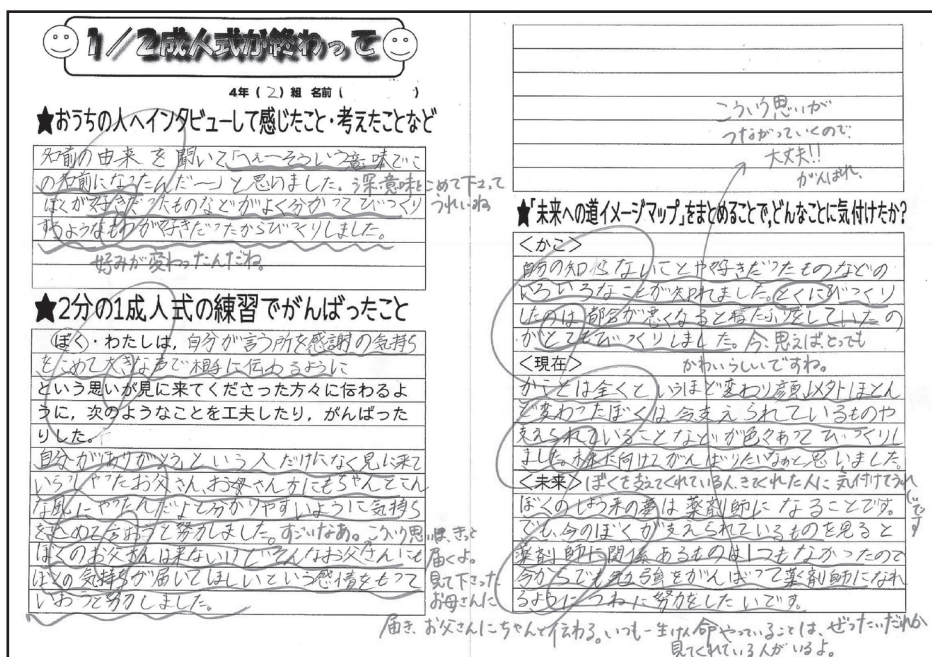 1/2成人式が終わって
4年(2)組 名前( )
★おうちの人へインタビューして感じたこと・考えたことなど
名前の由来を聞いて「へぇーそういう意味でこ
の名前になったんだ〜」と思いました。
深い意味をこめて下さって
うれしいね
ぼくが好きだったものなどがよく分かってびっくり
するようなものが好きだったからびっくりしました。
好みが変わったんだね。
★2分の1成人式の練習でがんばったこと
ぼく・わたしは,自分が言う所を感謝の気持ち
をこめて大きな声で相手に伝わるように
という思いが見に来てくださった方々に伝わるよ
うに,次のようなことを工夫したり,がんばった
りした。
自分がありがとうという人だけになく見に来て
いらしゃったお父さん、お母さん方にもちゃんとこん
な風にやったんだよと分かりやすいように気持ち
をこめて言おうと努力しました。
すごいなあ。こういう思いは、きっと
届くよ。
ぼくのお父さんは来ないけどそんなお父さんにも
ぼくの気持ちが届いてほしいという感情をもって
いおうと努力しました。
見て下さった
お母さんに
届き、お父さんにちゃんと伝わる。いつも一生けん命やっていることは、ぜったいだれか
見てくれている人がいるよ。
こういう思いが
つながっていくので、
大丈夫!!
がんばれ、
★「未来への道イメージマップ」をまとめることで,どんなことに気付けたか?
<かこ>
自分の知らないことや好きだったものなどの
いろいろなことが知れました。とくにびっくり
したのは都合が悪くなると寝たふりをしていたの
がとてもびっくりしました。
今、思えば、とっても
かわいらしいですね。
<現在>
かことは全くというほど変わり顔以外ほとん
ど変わったぼくは今支えられているものや
支えられていることなどが色々あってびっくりし
ました。
に向けてがんばりたいなあと思いました。
<未来>
ぼくを支えてくれている人、きてくれた人に気付けてうれしいです
ぼくのしょう来の夢は薬剤師になることです。
でも、今のぼくが支えられているものを見ると
薬剤師に関係あるものは1つもなかったので
今からでも勉強をがんばって薬剤師になれ
るようにつねに努力をしたいです。